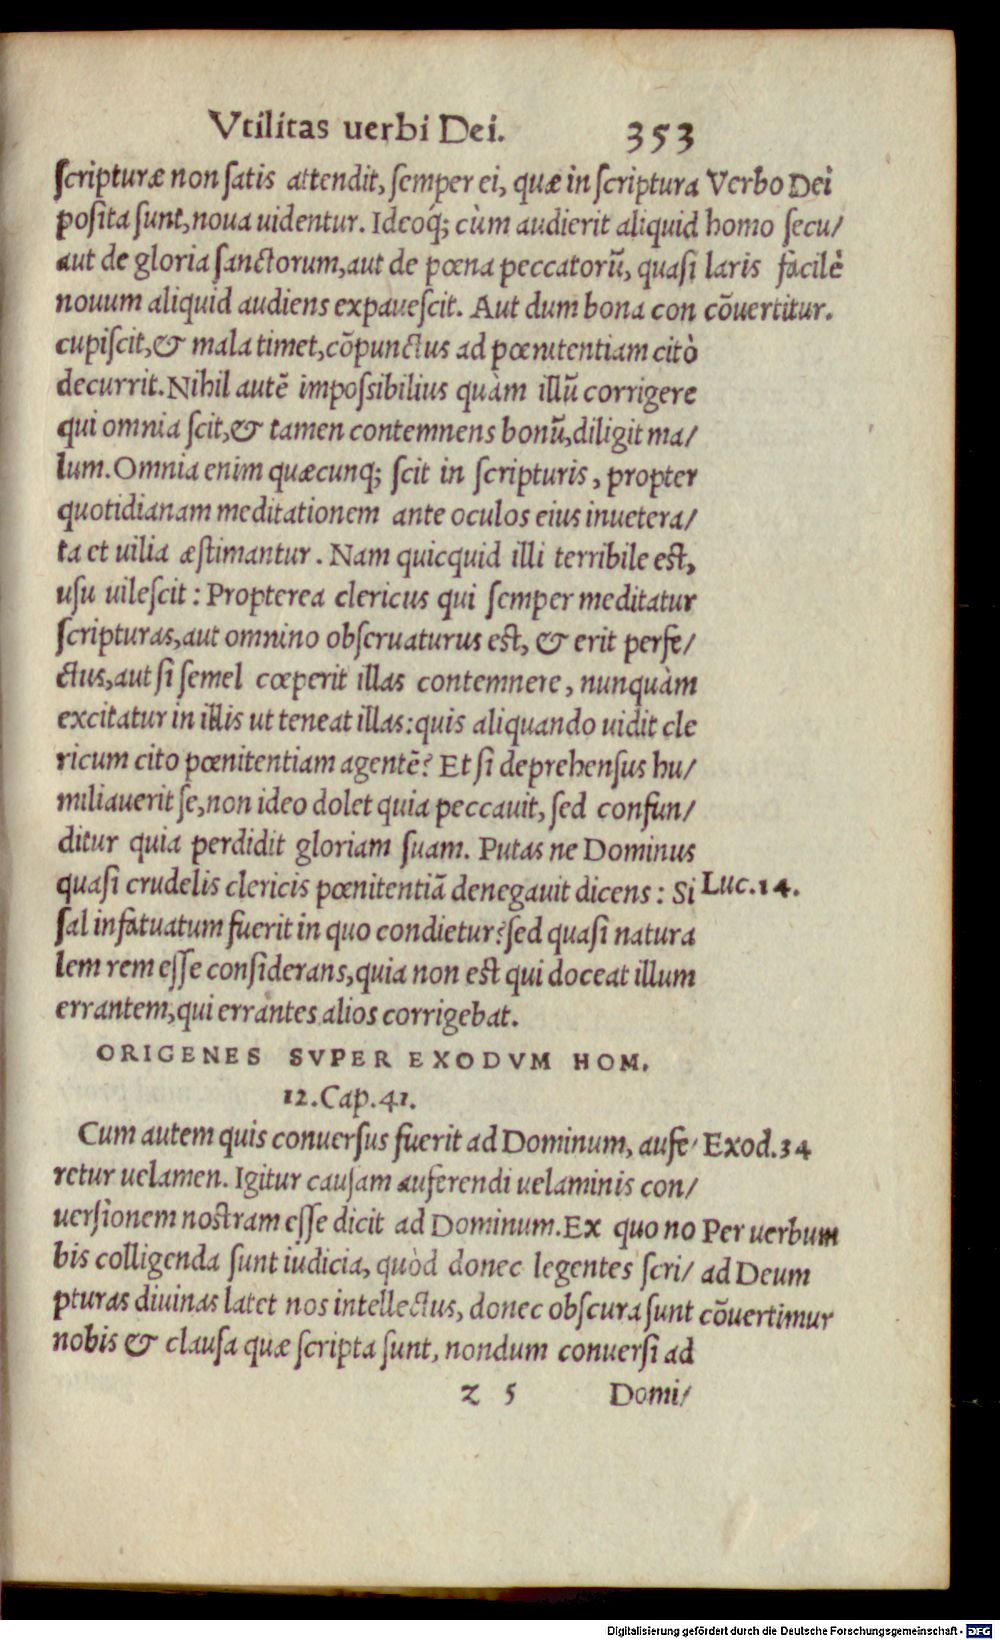 Vtilitas uerbi Dei. 353
scripturæ non satis attendit, semper ei, quæ in scriptura
posita sunt, noua uidentur. Ideoq́; cùm audierit aliquid homo
aut de gloria sanctorum, aut de pœna peccatorũ, quasi
nouum aliquid audiens expauescit. Aut dum bona con
cupiscit, & mala timet, cõpunctus ad pœnitentiam citò
decurrit. Nihil autẽ impossibilius quàm illũ corrigere
qui omnia scit, & tamen contemnens bonũ, diligit ma/
lum. Omnia enim quæcunq; scit in scripturis, propter
quotidianam meditationem ante oculos eius inuetera/
ta et uilia æstimantur. Nam quicquid illi terribile est,
usu uilescit: Propterea clericus qui semper meditatur
scripturas, aut omnino obseruaturus est, & erit perfe/
ctus, aut si semel cœperit illas contemnere, nunquàm
excitatur in illis ut teneat illas: quis aliquando uidit cle
ricum cito pœnitentiam agentẽ? Et si deprehensus hu/
miliauerit se, non ideo dolet quia peccauit, sed confun/
ditur quia perdidit gloriam suam. Putas ne Dominus
quasi crudelis clericis pœnitentiã denegauit dicens: Si
sal infatuatum fuerit in quo condietur? sed quasi natura
lem rem esse considerans, quia non est qui doceat illum
errantem, qui errantes alios corrigebat.
ORIGENES SVPER EXODVM HOM.
12. Cap. 41.
Cum autem quis conuersus fuerit ad Dominum, aufe/
retur uelamen. Igitur causam auferendi uelaminis con/
uersionem nostram esse dicit ad Dominum. Ex quo no
bis colligenda sunt iudicia, quòd donec legentes scri/
pturas diuinas latet nos intellectus, donec obscura sunt
nobis & clausa quæ scripta sunt, nondum conuersi ad
Z 5 Domi/
Verbo Dei
secu/
laris facilè
cõuertitur.
Luc. 14.
Exod. 34
Per uerbum
ad Deum
cõuertimur
Digitalisierung gefördert durch die Deutsche Forschungsgemeinschaft - DFG